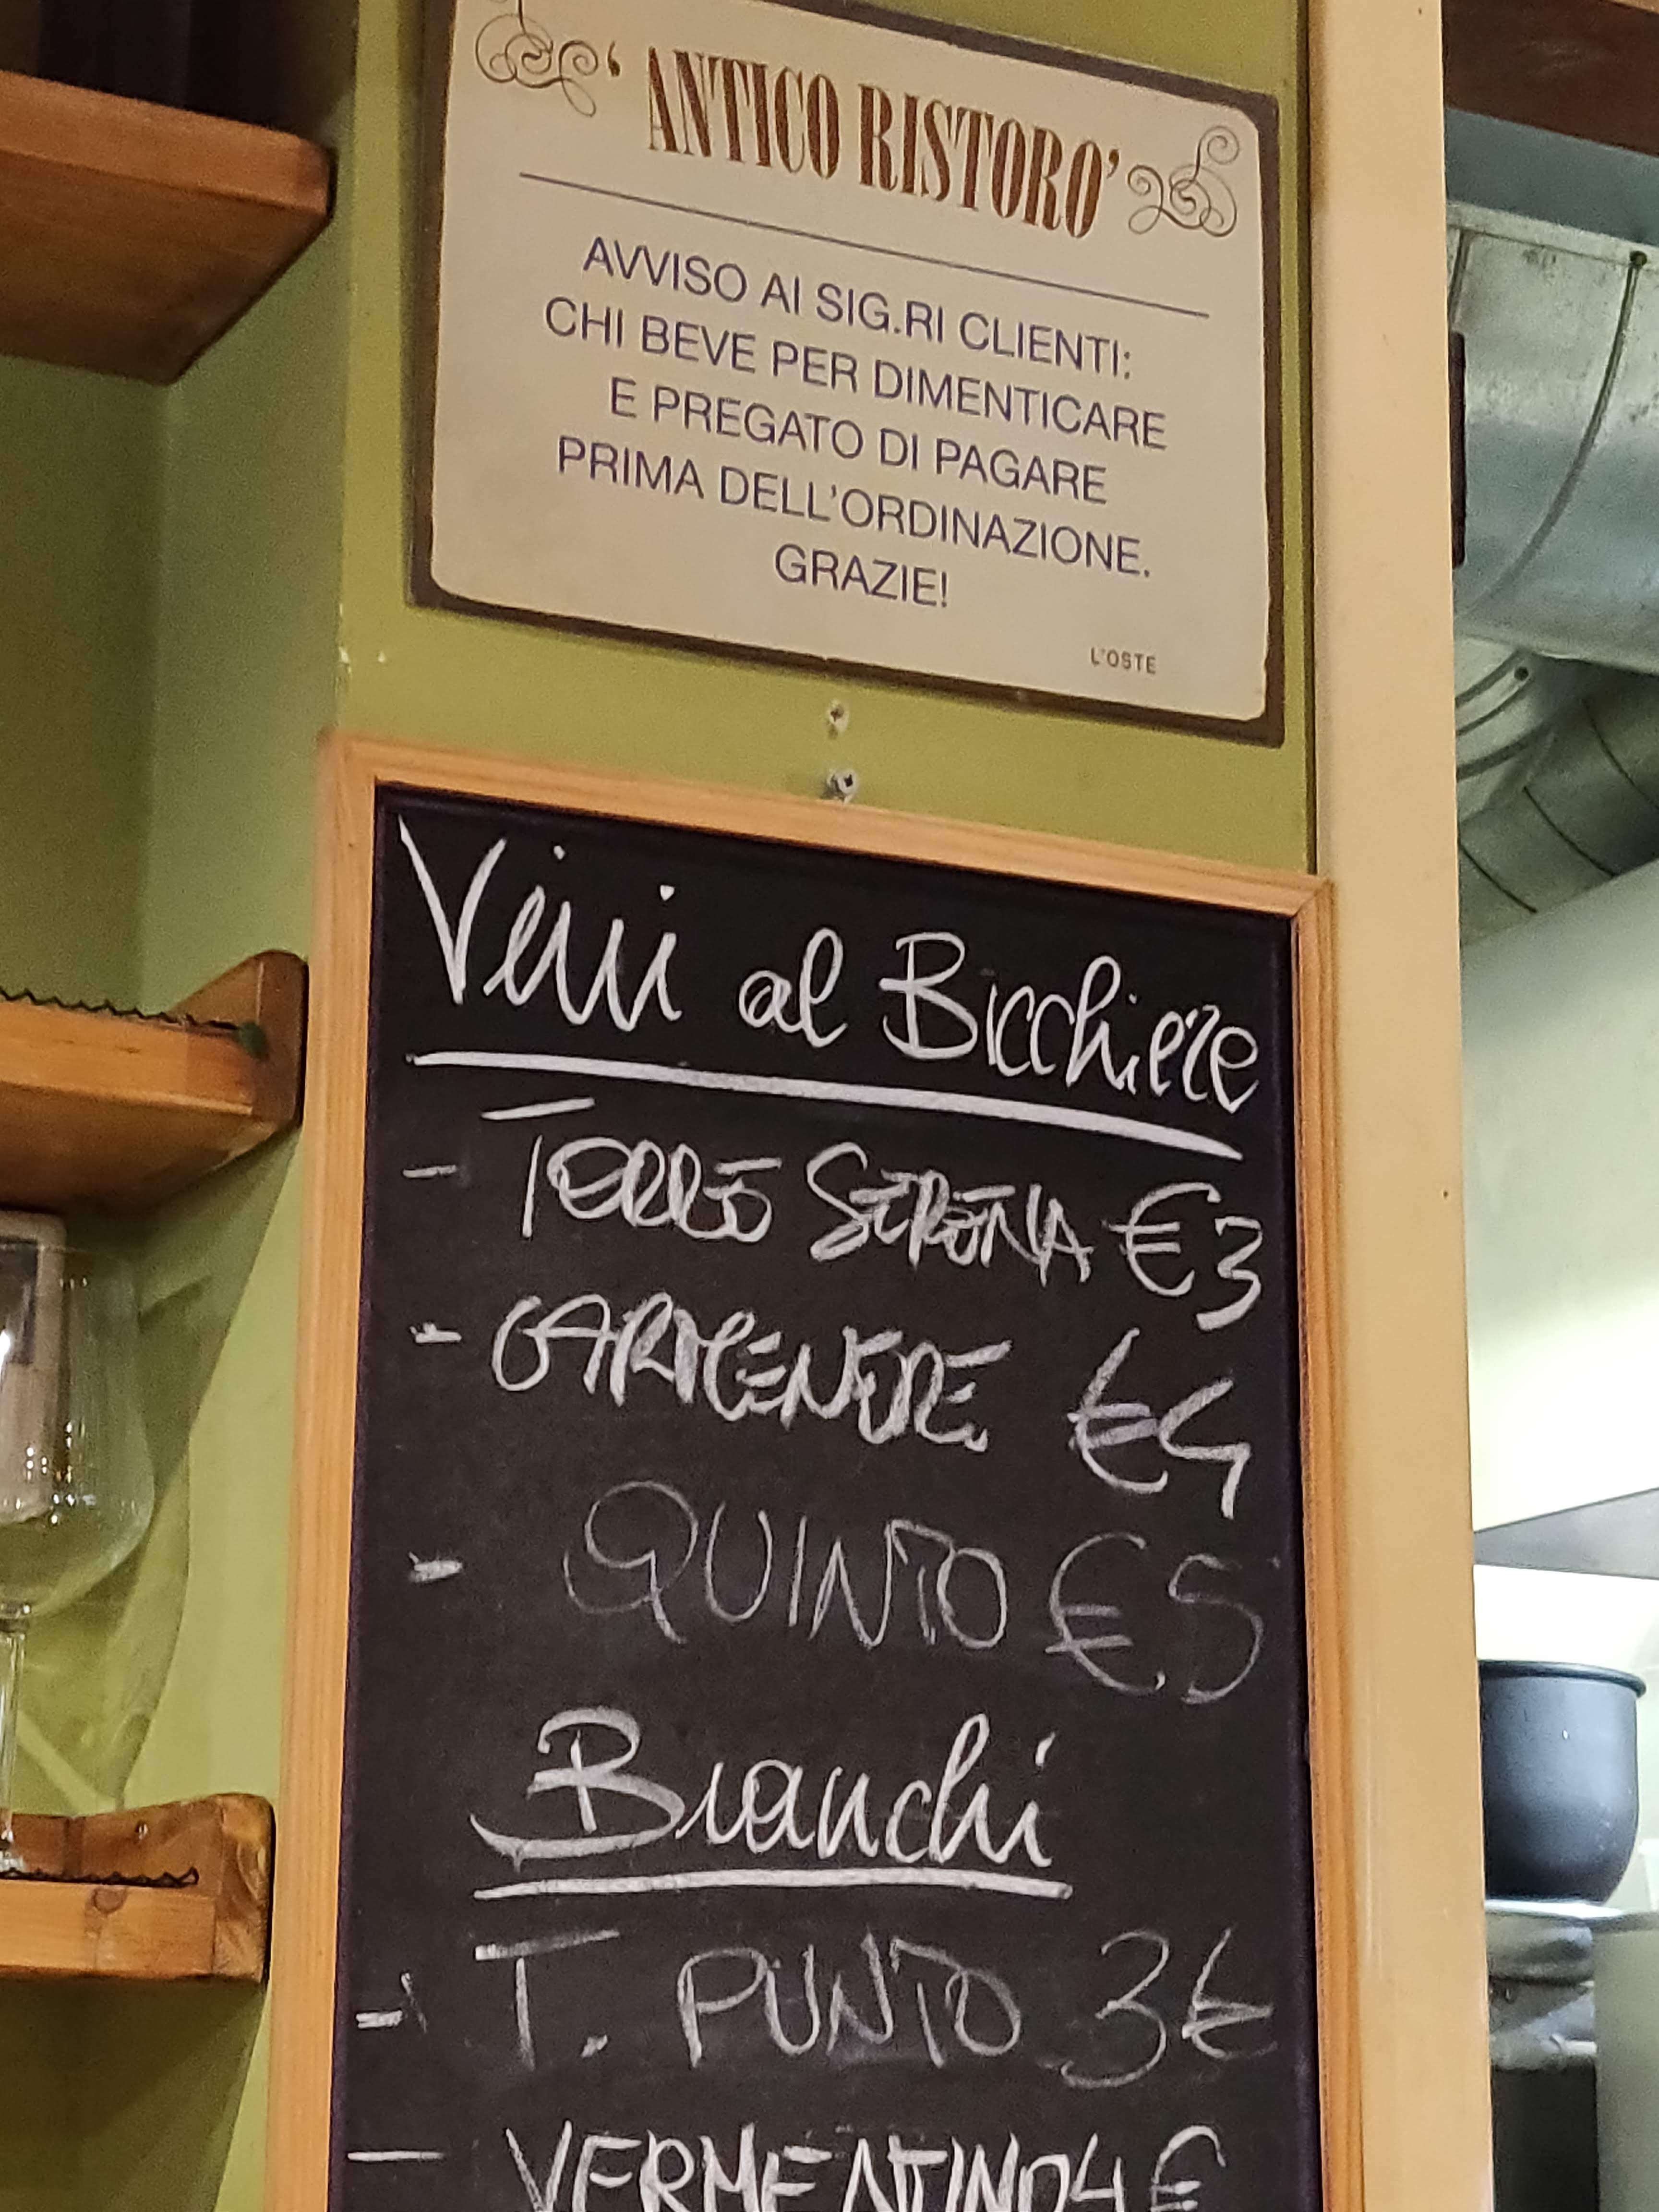 ‘ ANTICO RISTORO’
AVVISO AI SIG.RI CLIENTI:
CHI BEVE PER DIMENTICARE
E PREGATO DI PAGARE
PRIMA DELL’ORDINAZIONE.
GRAZIE!
L’OSTE
Vini al Bicchiere
- TERRE SERENA € 3
- CARMENERE. €4
- QUINTO €.5
Bianchi
- T. PUNTO 3€
- VERMENTINO 4€